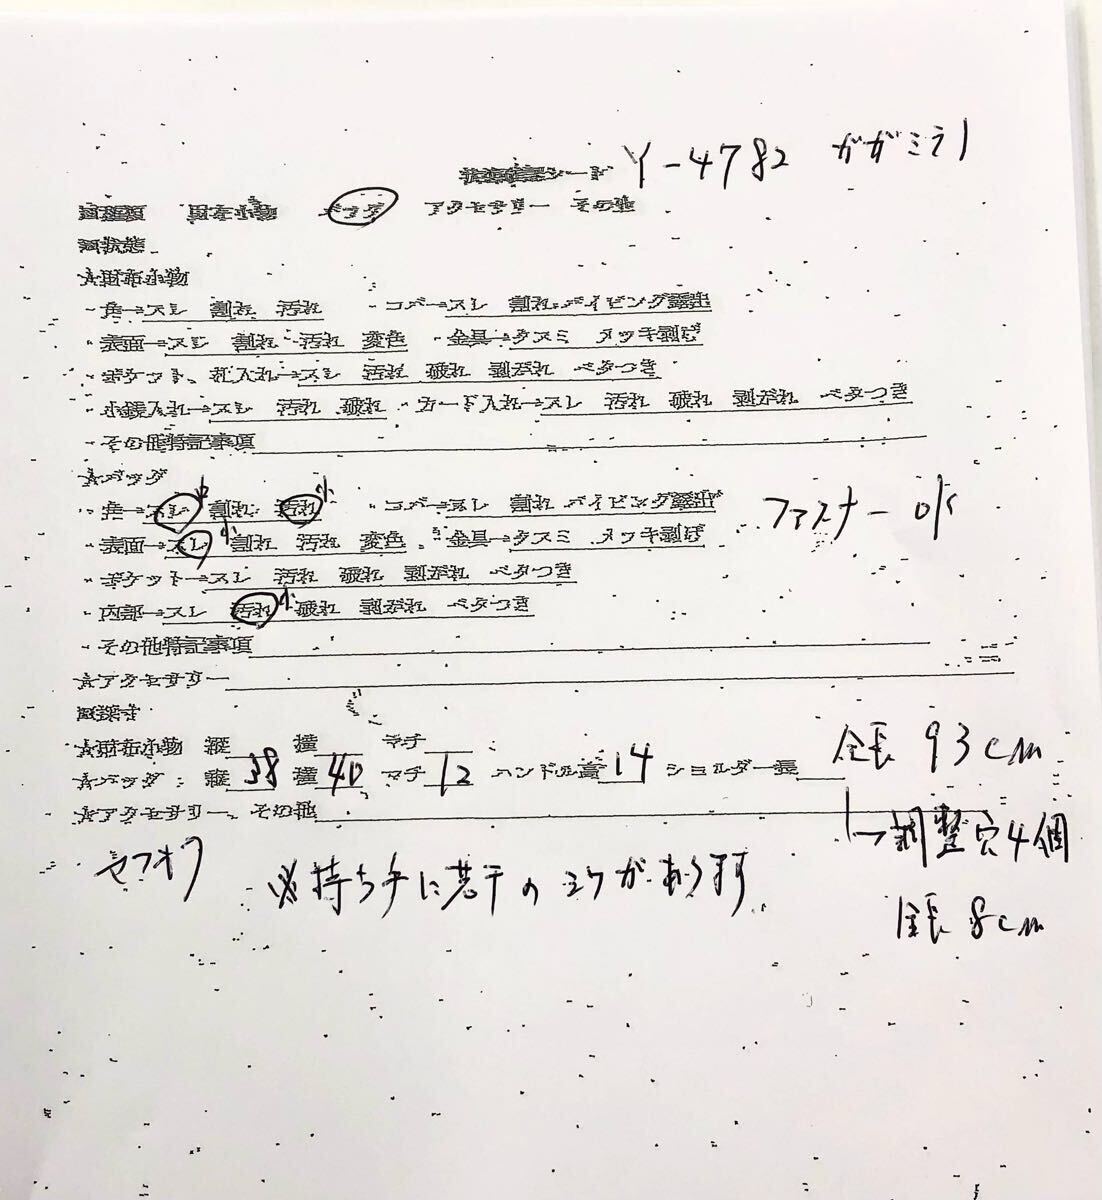 状態確認シート Y-4782 ガガミラノ
財布小物 バッグ アクセサリー その他
状態
★財布小物
・角→スレ 割れ 汚れ ・コバ→スレ 割れ パイピング露出
・表面→スレ 割れ 汚れ 変色 ・金具→クスミ メッキ剥げ
・ポケット、札入れ→スレ 汚れ 破れ 剥がれ ベタつき
・小銭入れ→スレ 汚れ 破れ ・カード入れ→スレ 汚れ 破れ 剥がれ ベタつき
・その他特記事項
★バッグ
・角→スレ 小 割れ 汚れ 小 ・コバ→スレ 割れ パイピング露出 ファスナー ok
・表面→スレ 小 割れ 汚れ 変色 ・金具→クスミ メッキ剥げ
・ポケット→スレ 汚れ 破れ 剥がれ ベタつき
・内部→スレ 汚れ 小 破れ 剥がれ ベタつき
・その他特記事項
★アクセサリー
採寸
★財布小物 縦 横 マチ 全長 93cm
★バッグ 縦 38 横 40 マチ 12 ハンドル高 14 ショルダー長
★アクセサリー、その他 →調整穴4個
ヤフオク ※持ち手に若干のシワがあります
全長 8cm